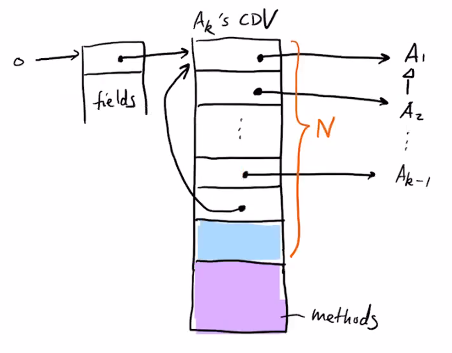 Aₖ's CDV
o
fields
A₁
A₂
⋮
⋮
N
Aₖ₋₁
methods